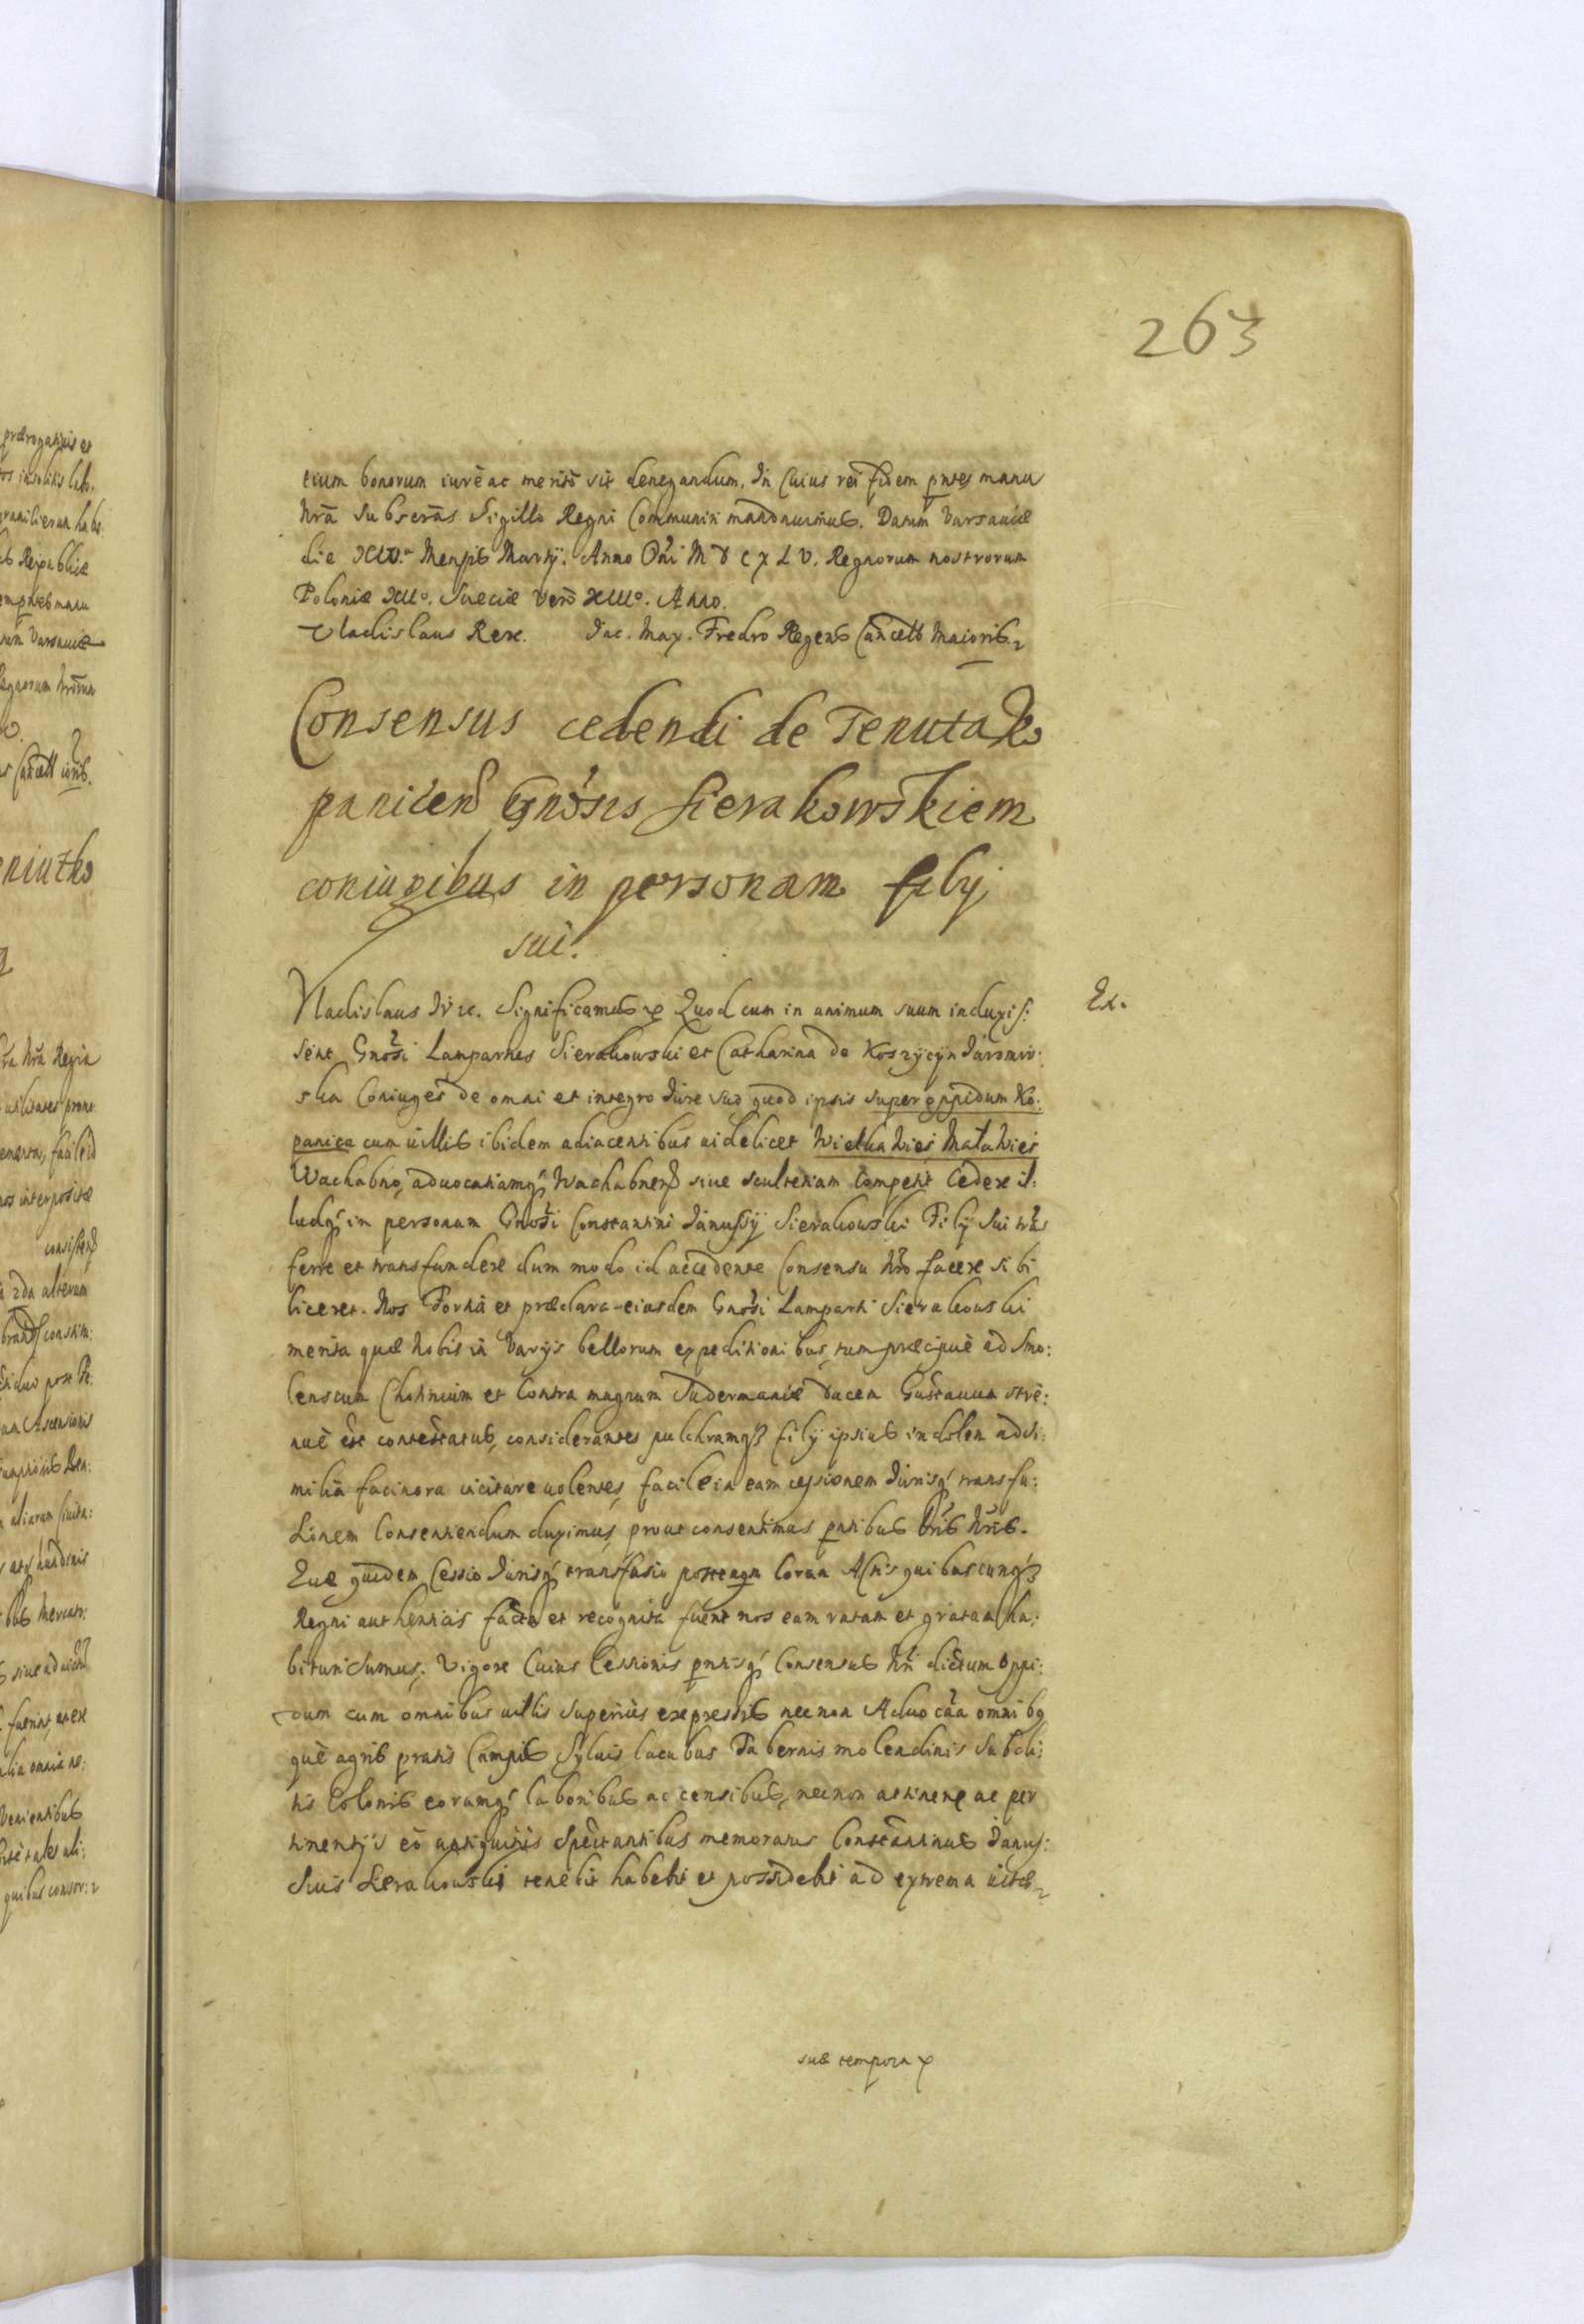 263
eium bonorum iurè ac meritò sit denegandum. In Cuius rei fidem pntes manu
nrã subscrãs Sigillo Regni Communiri mandauimus. Datum Varsauiæ
die Mensis Martij. Anno Dni M D C X L V. Regnorum nostrorum
Poloniæ XIIIo. Sueciæ verò XIIIo. Anno.
Vladislaus Rex. Jac. Max. Fredro Regens Cancell Maioris
Consensus cedendi de Tenuta Ko
panicen Gnosis Sierakowskiem
coniugibus in personam filij
sui.
Vladislaus IV etc. Significamus etc Quod cum in animum suum induxis:
Ex.
sent Gnosi Lampartus Sierakowski et Catharina de Koszycyn Jaromir:
ska Coniuges de omni et integro Iure suo quod ipsis super oppidum Ko:
panica cum uillis ibidem adiacentibus uidelicet Wielka Wies Mała Wies
Wachabno, aduocatiamq Wachabnen siue scultetiam Competit Cedere il:
ludq in personam Gnosi Constantini Janussij Sierakowski Filij sui trans
ferre et transfundere dum modo id accedente Consensu Nro facere sibi
liceret. Nos Fortia et præclara eiusdem Gnosi Lamparti Sierakowski
merita quæ Nobis in Varijs bellorum expeditionibus, tum præcipuè ad Smo:
lenscum Chotimium et Contra magnum Sudermaniæ Ducem Gustauum stre:
nuè est contestatus, considerantes pulchramq filij ipsius indolem ad si:
milia facinora incitare uolentes, facile in eam cessionem Iurisq transfu:
sionem Consentiendum duximus, prout consentimus pntibus Lris Nris.
Quæ quidem Cessio Iurisq transfusio posteaqm Coram Actis quibuscunq
Regni authenticis facta et recognita fuerit nos eam ratam et gratam ha:
bituri sumus. Vigore Cuius Cessionis pntisq Consensus Nri dictum Oppi:
dum cum omnibus uillis superius expressis necnon Aduocãa omnibq
què agris pratis Campis Syluis lacubus Tabernis molendinis subdi:
tis Colonis eorumq laboribus ac censibus, necnon attinen ac per
tinentijs eò antiquitùs Spectantibus memoratus Constantinus Janus:
sius Sierakowski tenebit habebit et possidebit ad extrema uitæ
suæ tempora